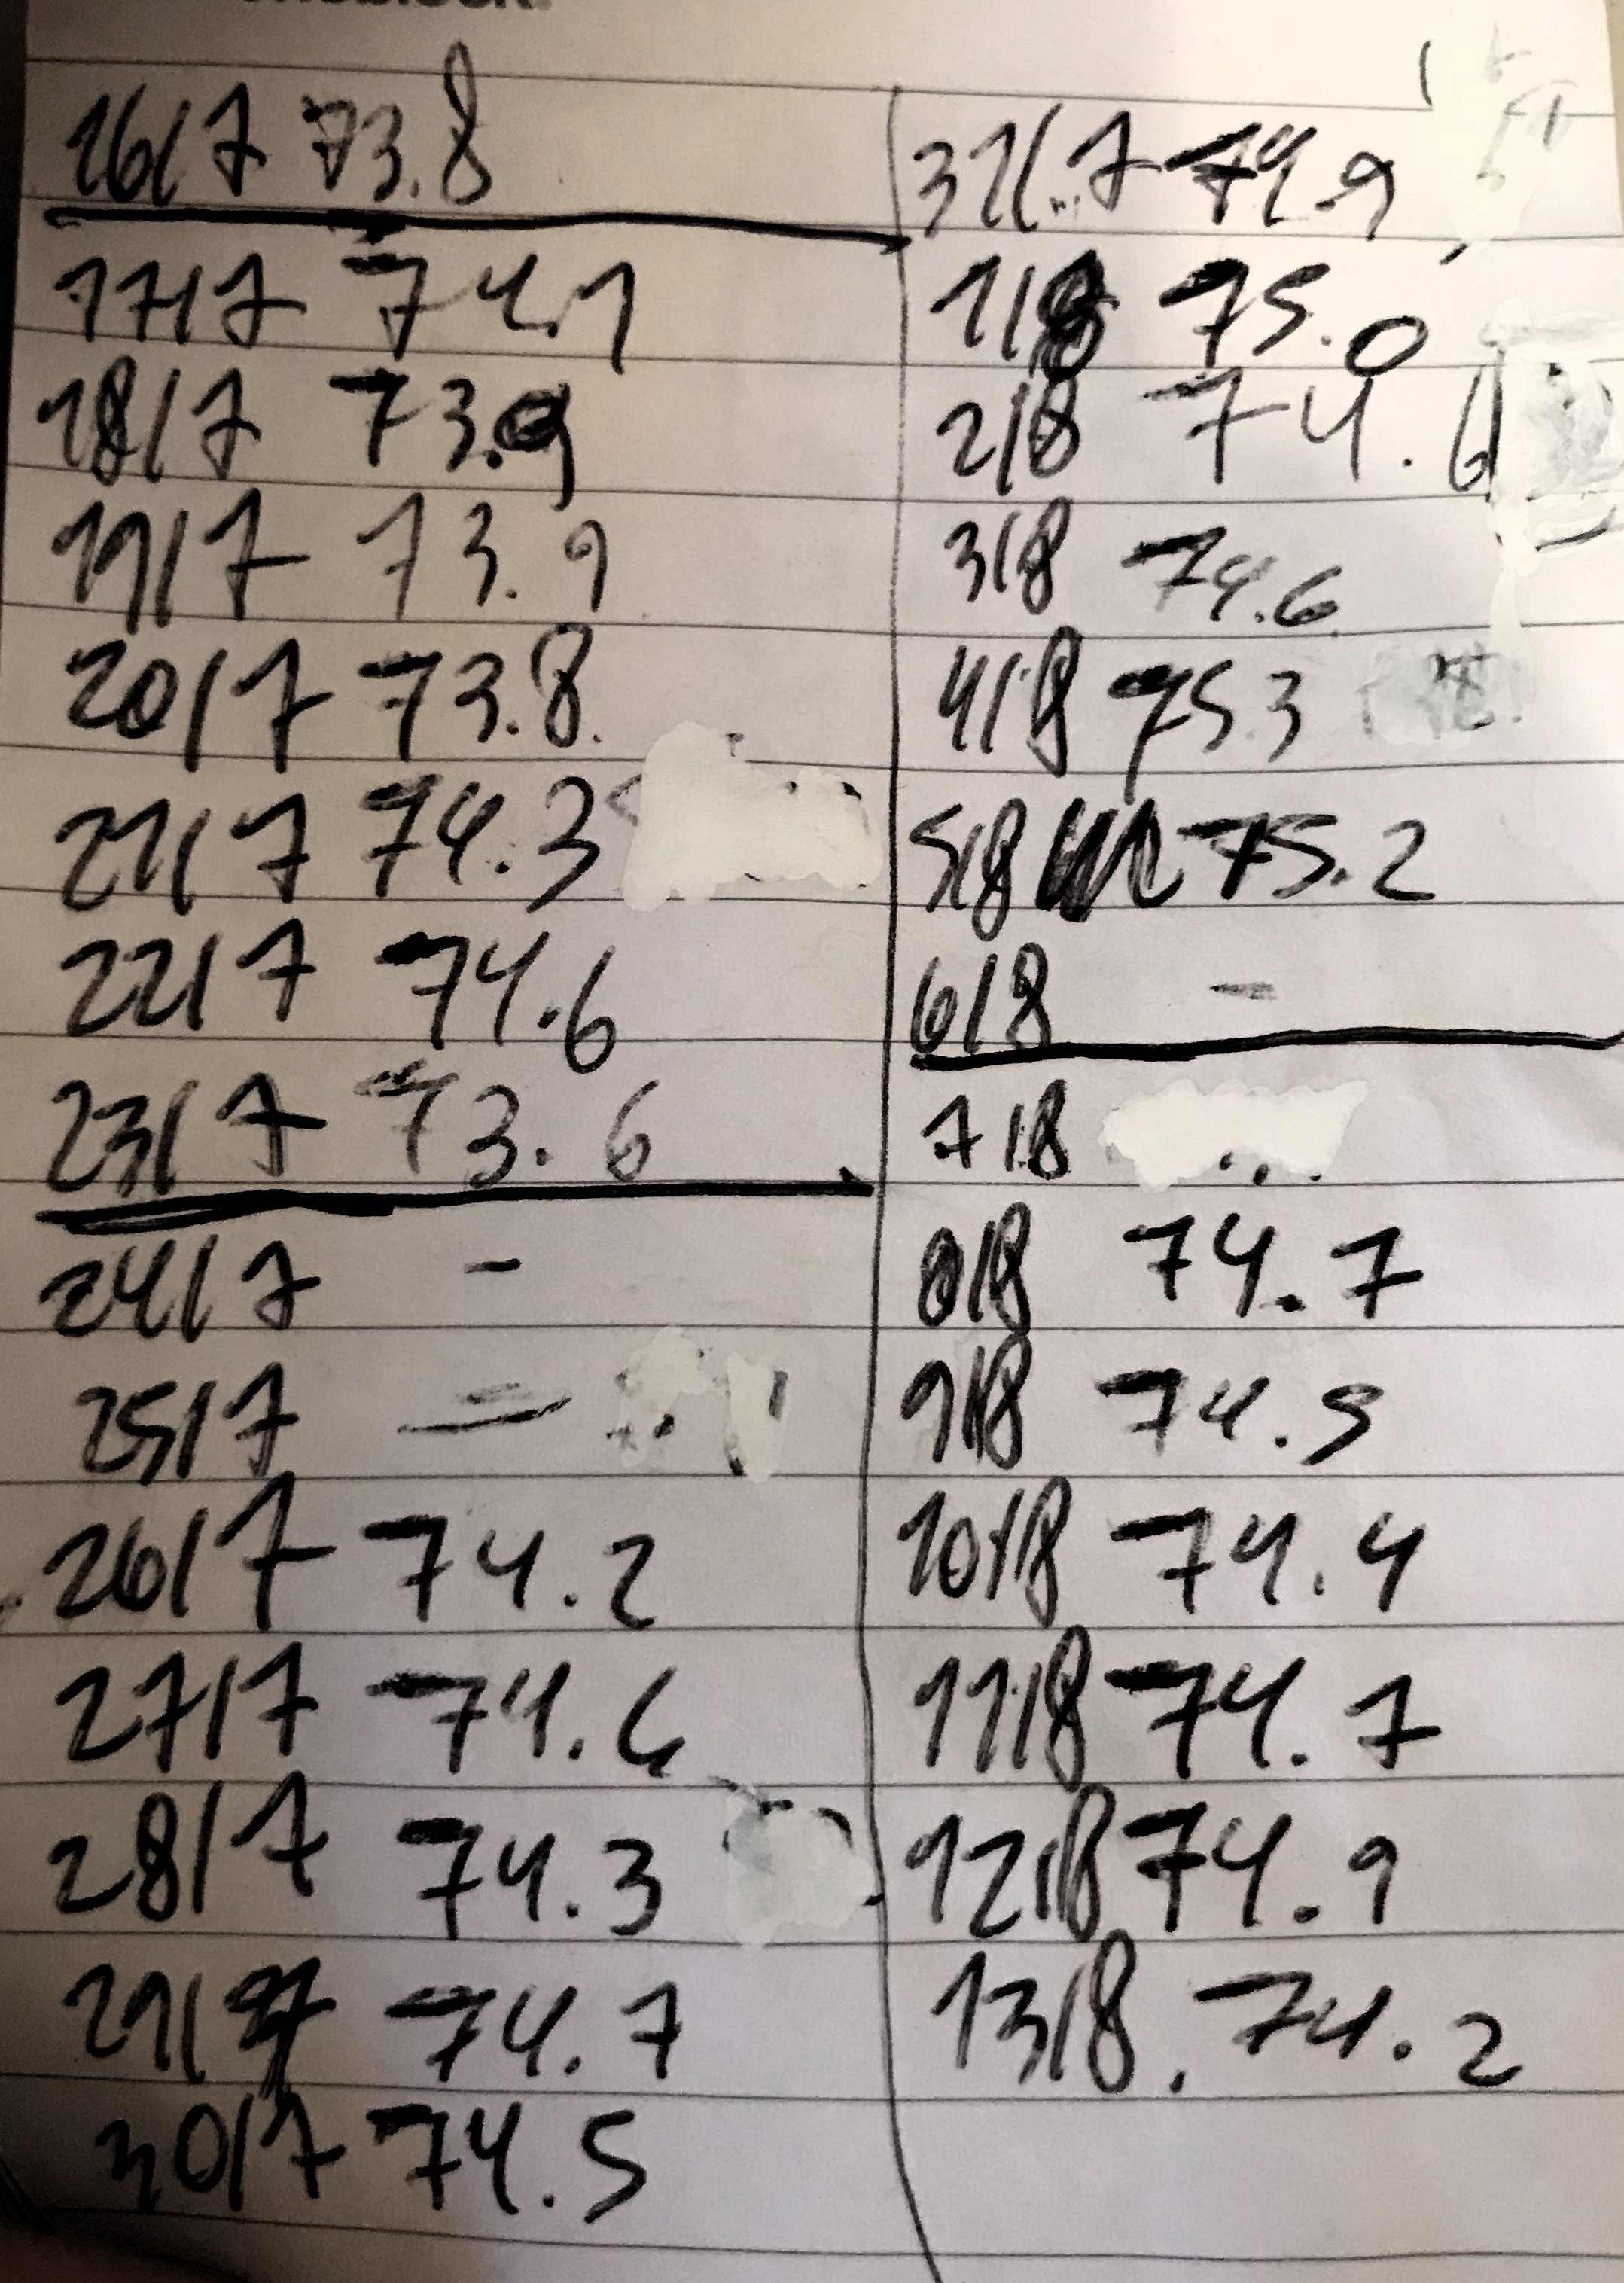 16/7 73.8
17/7 74.1
18/7 73.9
19/7 73.9
20/7 73.8
21/7 74.3
22/7 74.6
23/7 73.6
24/7 -
25/7 -
26/7 74.2
27/7 74.6
28/7 74.3
29/7 74.7
30/7 74.5
31/7 74.9
1/8 75.0
2/8 74.6
3/8 74.6
4/8 75.3
5/8 75.2
6/8 -
7/8
8/8 74.7
9/8 74.5
10/8 74.4
11/8 74.7
12/8 74.9
13/8. 74.2